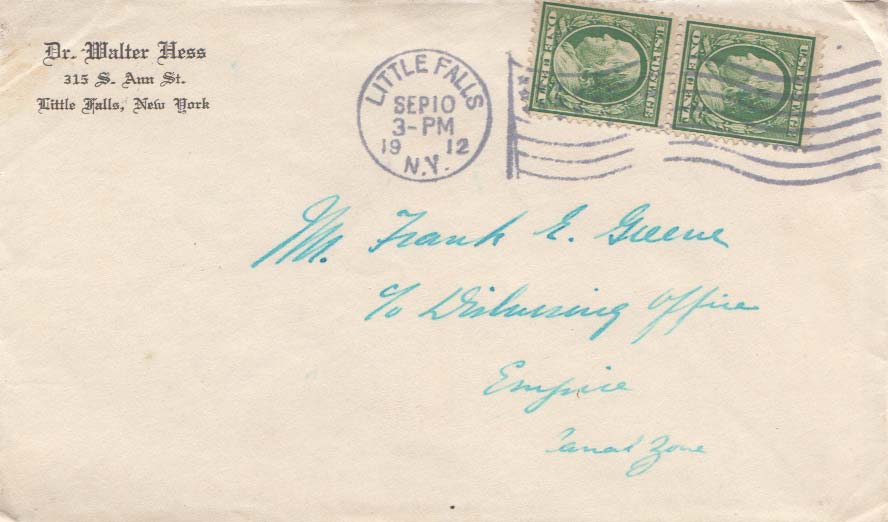 Dr. Walter Hess
315 S. Ann St.
Little Falls, New York
LITTLE FALLS
SEP10
3-PM
1912
N.Y.
U.S. POSTAGE
ONE CENT
U.S. POSTAGE
ONE CENT
Mr. Frank E. Greene
c/o Disbursing Office
Empire
Canal Zone